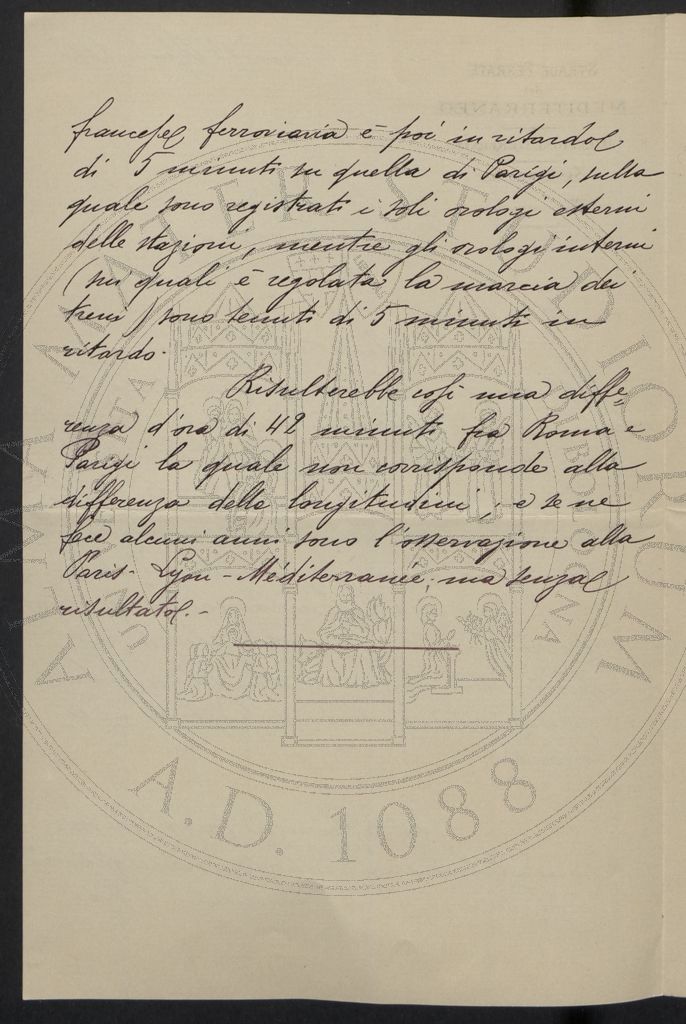 STRADE FERRATE
MEDITERRANEO
francese ferroviaria è poi in ritardo
di 5 minuti su quella di Parigi, sulla
quale sono registrati i soli orologi esterni
delle stazioni, mentre gli orologi interni
(sui quali è regolata la marcia dei
treni) sono tenuti di 5 minuti in
ritardo.
Risulterebbe così una diffe-
renza d'ora di 42 minuti fra Roma e
Parigi la quale non corrisponde alla
differenza delle longitudini; e se ne
fece alcuni anni sono l'osservazione alla
Paris-Lyon-Méditerranée; ma senza
risultato.-
ALMA MATER STUDIORUM
A.D. 1088